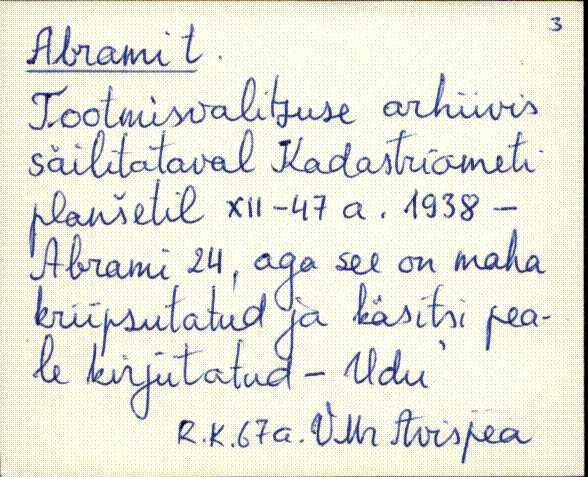 3
Abrami t.
Tootmisvalitsuse arhiivis
säilitataval Kadastriameti
planšetil XII-47 a. 1938 –
Abrami 24, aga see on maha
kriipsutatud ja käsitsi pea-
le kirjutatud – Udu
R.K. 67a. VMr Avispea